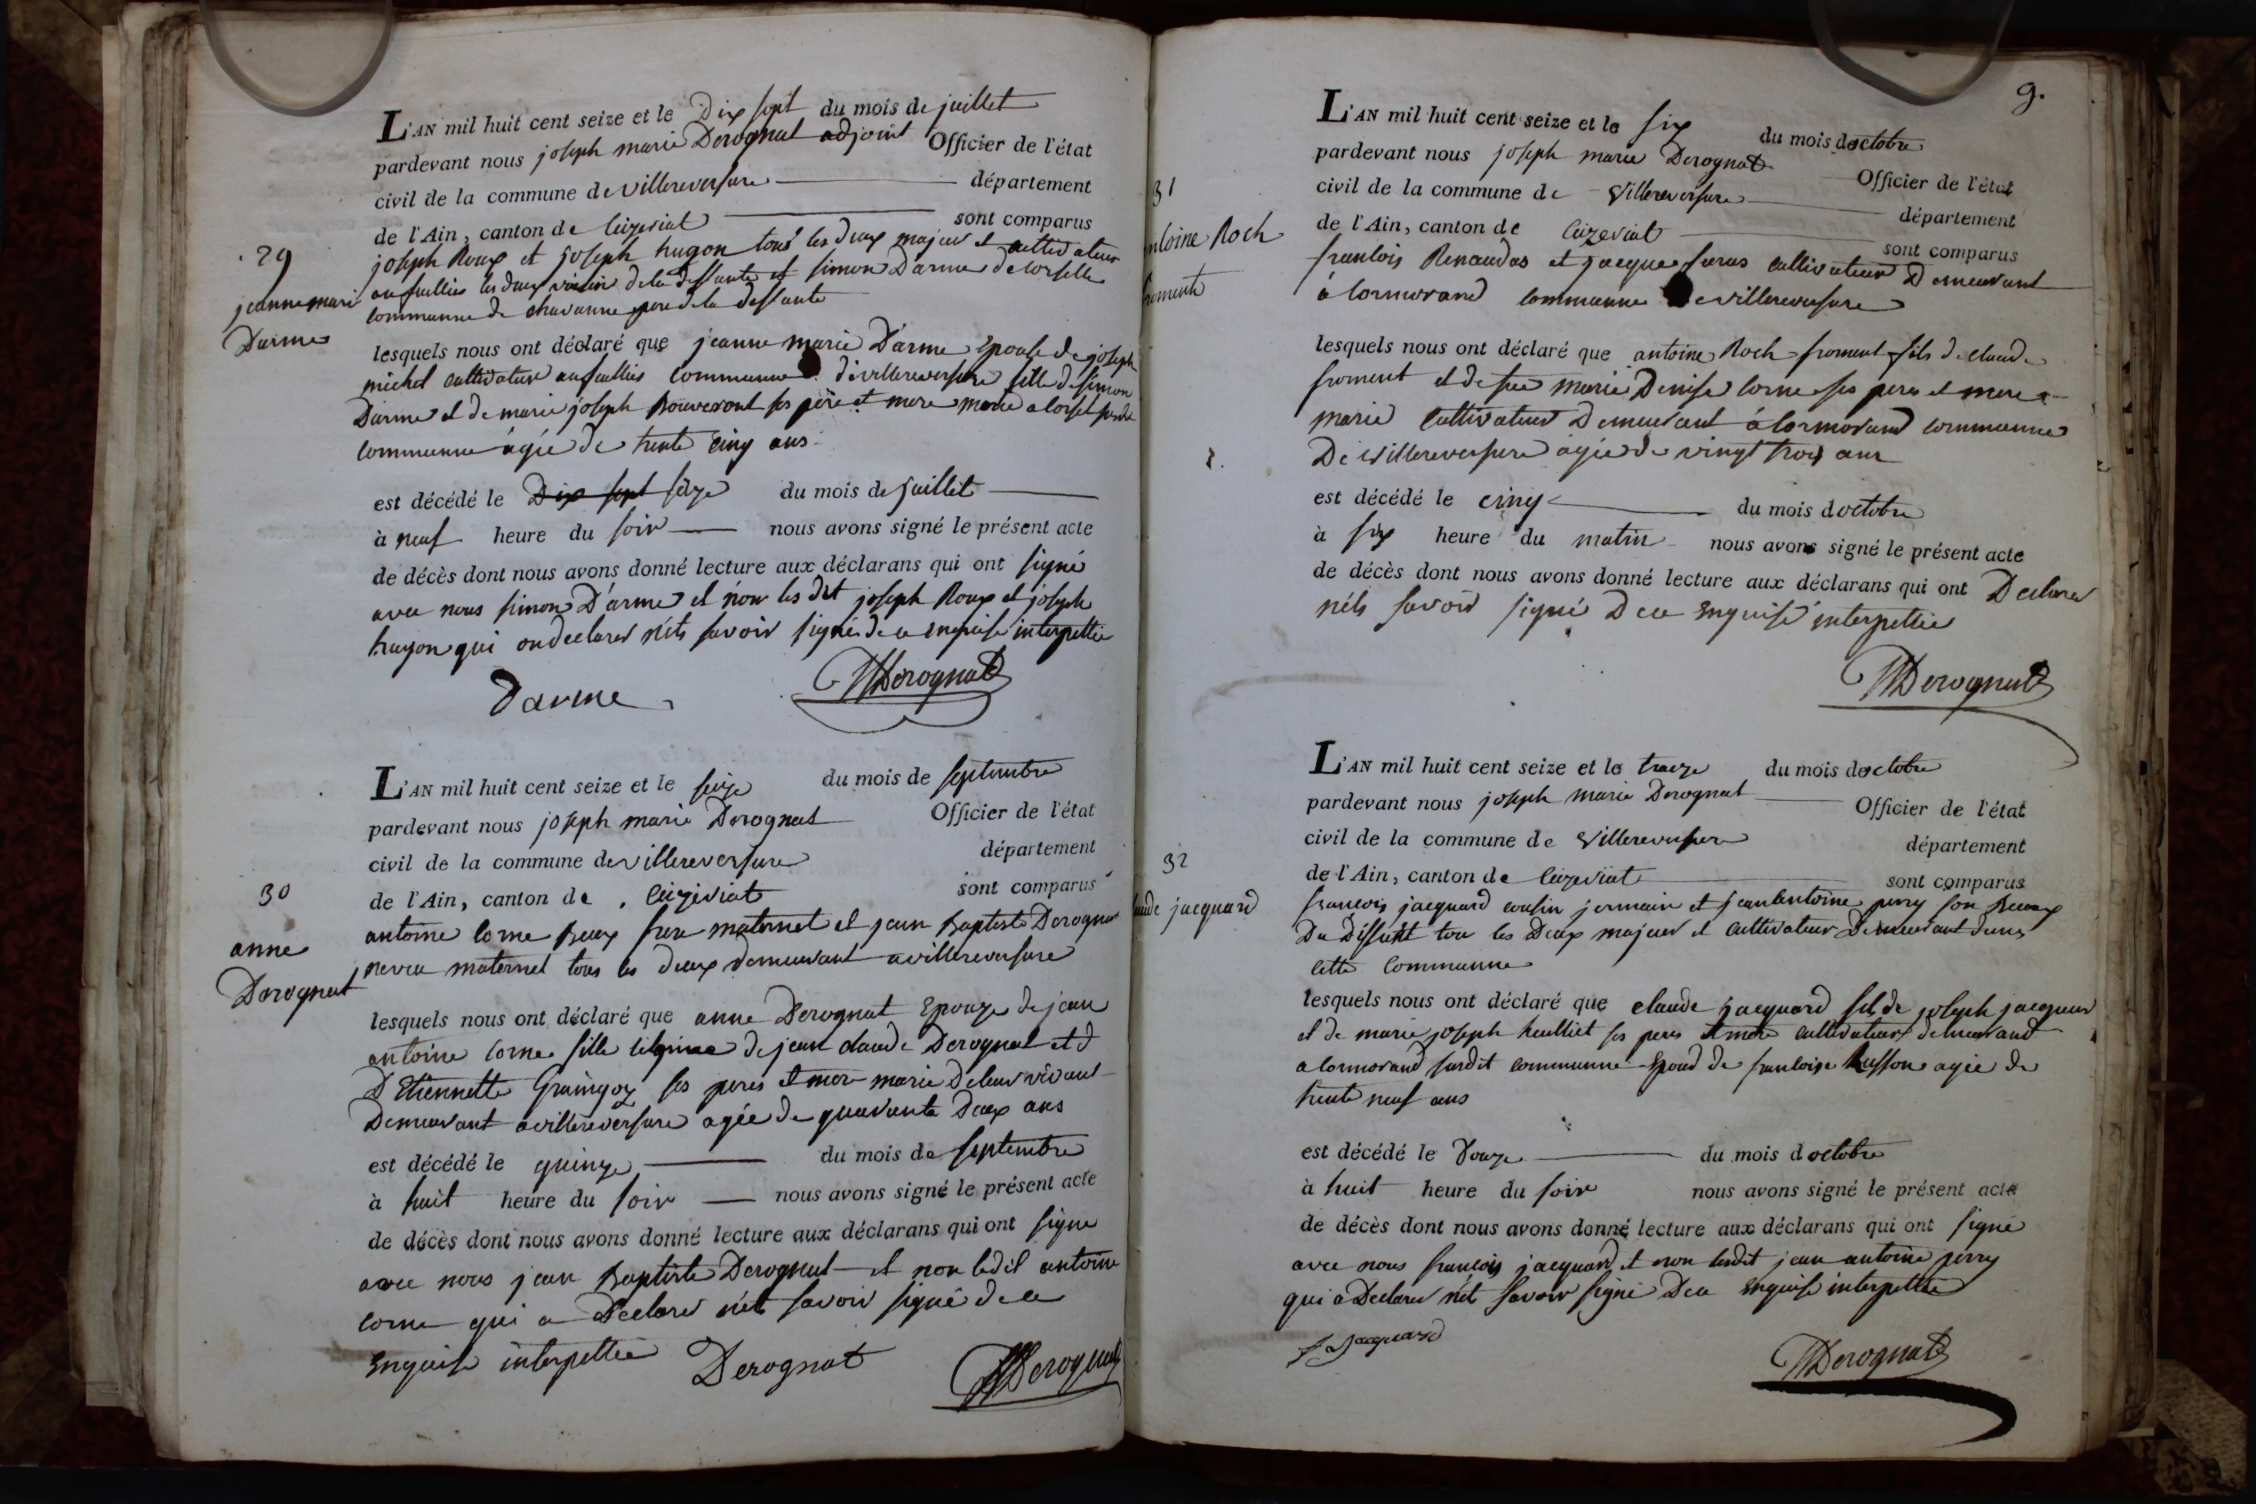 L'AN mil huit cent seize et le Dix sept du mois de juillet
pardevant nous joseph marie Derognat adjoint Officier de l'état
civil de la commune de villereversure département
de l'Ain, canton de Ceizeriat sont comparus
joseph Roux et joseph hugon tous les deux majeur et cultivateur
au faillies les deux voisin de la deffante et simon D'arme de Corselle
commune de chavanne pere de la deffante
29
jeanne marie
Darme
lesquels nous ont déclaré que jeanne marie D'arme Epouse de joseph
michel cultivateur au faillies commune de villereversure fille de simon
Darme et de marie joseph ses père et mere
commune agée de trente cinq ans
est décédé le Dix sept seize du mois de juillet
à neuf heure du soir nous avons signé le présent acte
de décès dont nous avons donné lecture aux déclarans qui ont signé
avec nous simon D'arme et non les dit joseph Roux et joseph
hugon qui on declarer n'ets savoir signé de ce enquise interpellie
Darme JMDerognat
L'AN mil huit cent seize et le seize du mois de septembre
pardevant nous joseph marie Derognat Officier de l'état
civil de la commune de villereversure département
de l'Ain, canton de Ceizeriat sont comparus
antoine Corne Beaux frere maternel et jean Baptiste Derognat
neveu maternel tous les deux demeurant a villereversure
30
anne
Derognat
lesquels nous ont déclaré que anne Derognat Epouze de jean
antoine Corne fille de jean claude Derognat et d
D'Etiennette ses peres et mer marie de leur vivant
Demeurant a villereversure agée de quarante Deux ans
est décédé le quinze du mois de septembre
à huit heure du soir nous avons signé le présent acte
de décès dont nous avons donné lecture aux déclarans qui ont signe
avec nous jean Baptiste Derognat et non ledit antoine
Corne qui a Declarer n'et savoir signé de ce
enquise interpellie Derognat JMDerognat
9.
L'AN mil huit cent seize et le six du mois d'octobre
pardevant nous joseph marie Derognat Officier de l'état
civil de la commune de Villereversure département
de l'Ain, canton de Ceizeriat sont comparus
francois Renaudas et jacque cultivateur Demeurant
à Cormorand commune de villereversure
31
ntoine Roch
froment
lesquels nous ont déclaré que antoine Roch froment fils de claude
froment et de feu marie Denise Corne ses peres et mere
marie cultivateur Demeurant à Cormorand commune
De villereversure agée de vingt trois ans
est décédé le cinq du mois d'octobre
à six heure du matin nous avons signé le présent acte
de décès dont nous avons donné lecture aux déclarans qui ont Declarer
n'ets savoir signé De ce enquise interpellie
JMDerognat
L'AN mil huit cent seize et le traize du mois d'octobre
pardevant nous joseph marie Derognat Officier de l'état
civil de la commune de Villereversure département
de l'Ain, canton de Ceizeriat sont comparus
francois jacquard cousin jermain et jean antoine perry son Beaux
Du Diffunt tou les Deux majeur et cultivateur Demeurant dans
cette commune
32
laude jacquard
lesquels nous ont déclaré que claude jacquard fils de joseph jacquard
et de marie joseph ses peres et mere cultivateur demeurant
a Cormorand susdit commune Epoud de francoise Buffon agée de
trente neuf ans
est décédé le Douze du mois d'octobre
à huit heure du soir nous avons signé le présent acte
de décès dont nous avons donné lecture aux déclarans qui ont signé
avec nous francois jacquard et non ledit jean antoine perry
qui a Declarer n'et savoir signé De ce enquise interpellie
f Jacquard
JMDerognat